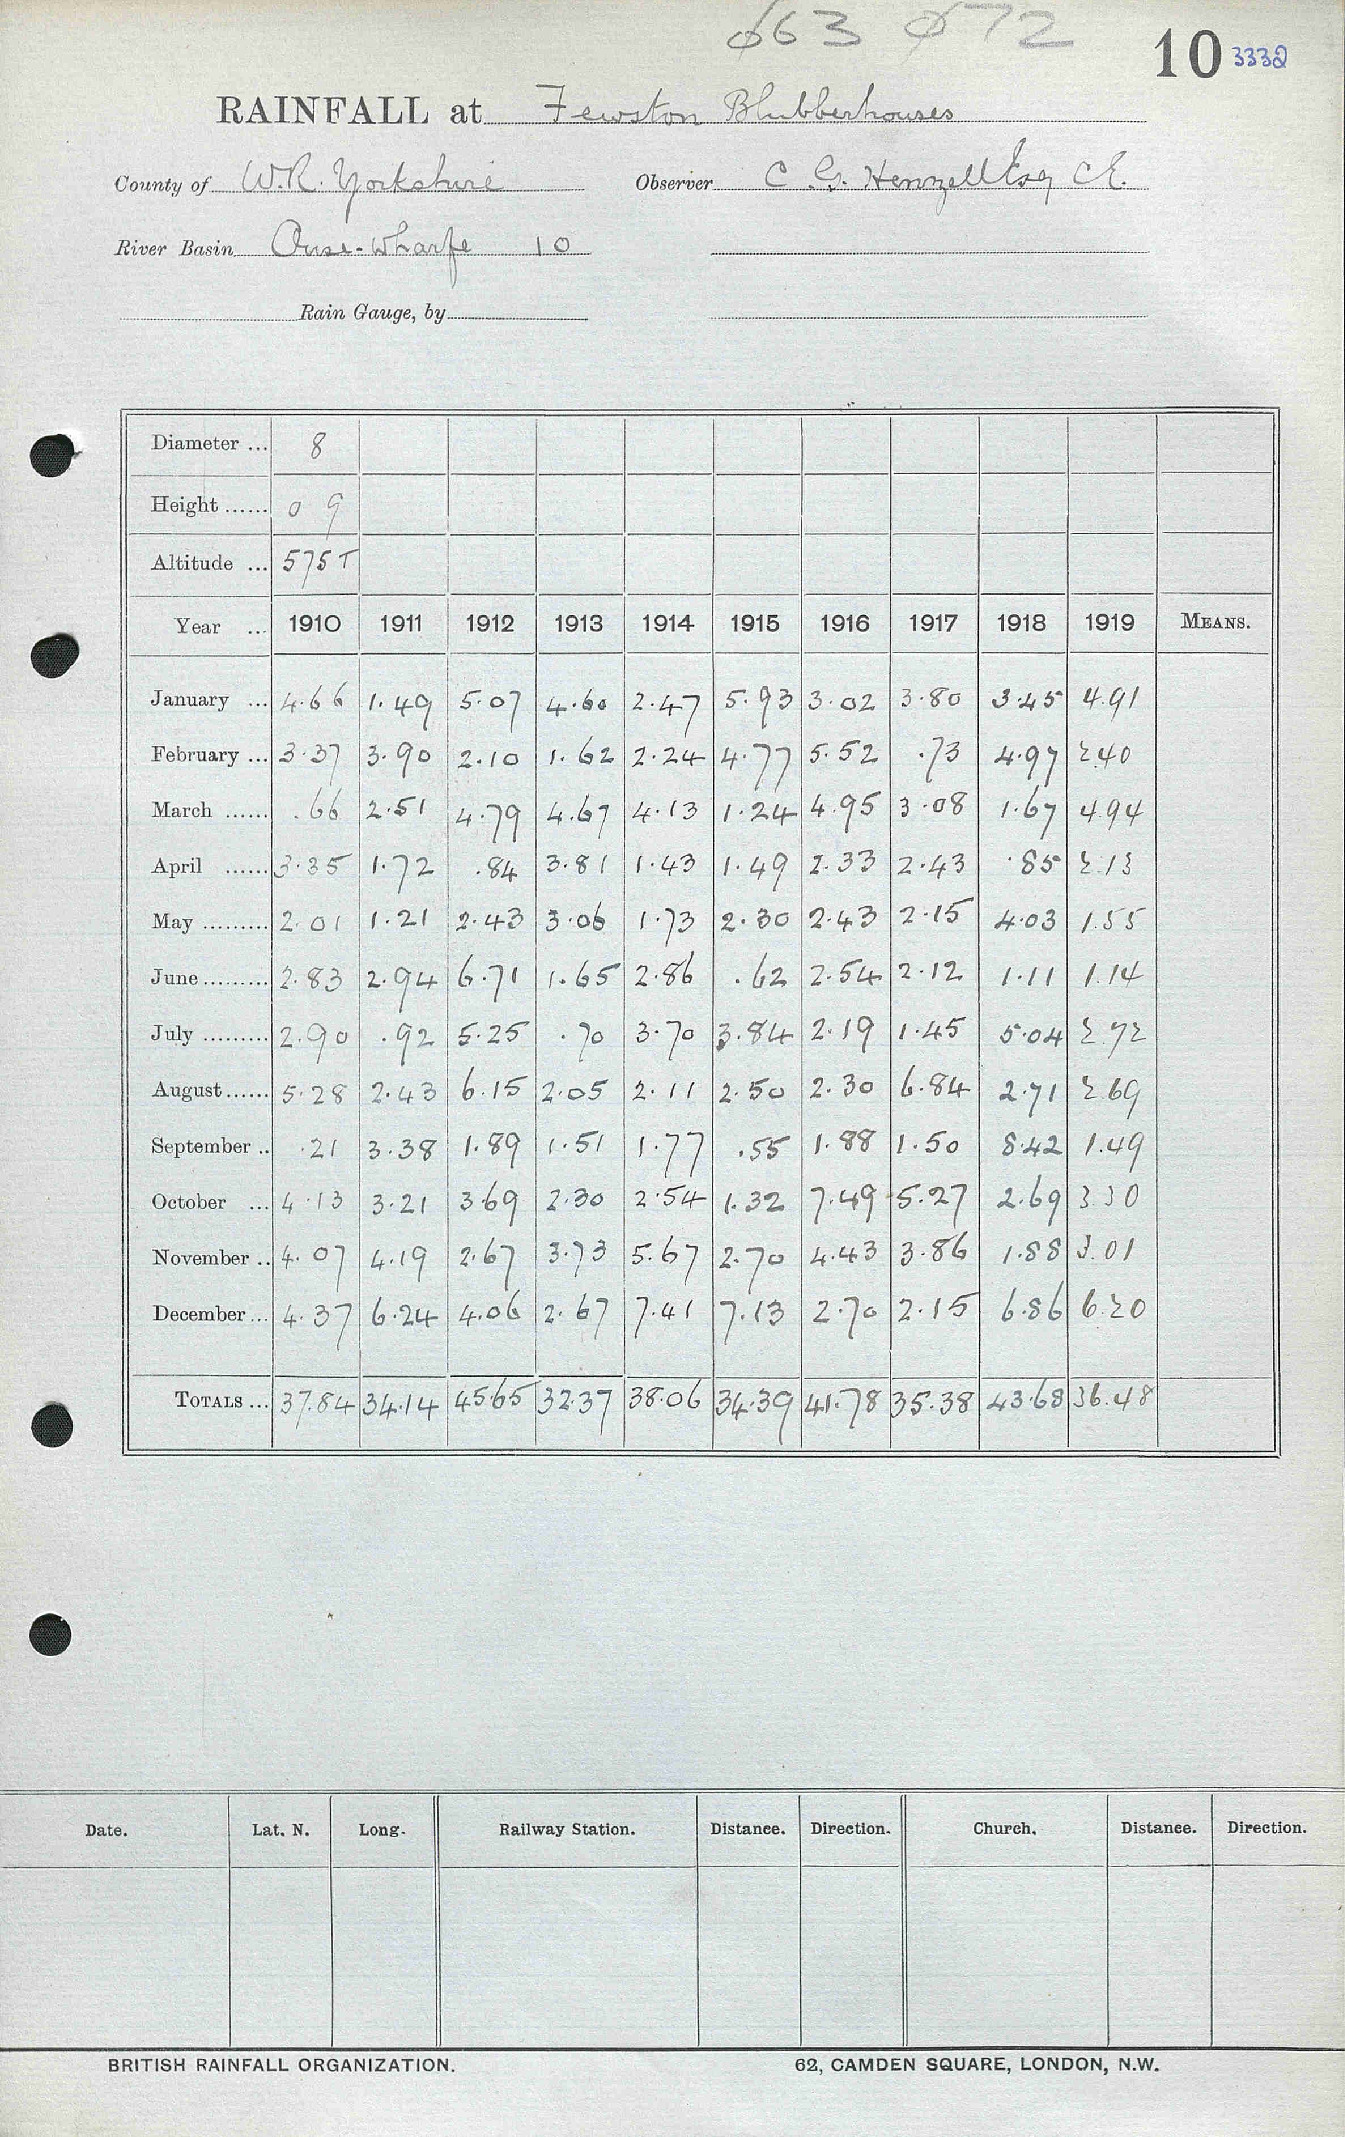 663 672
10 3332
RAINFALL at Fewston Blubberhouses
County of W.R. Yorkshire Observer C. G. Henzell Esq C.E.
River Basin Ouse-Wharfe 10
Rain Gauge, by
Diameter ... 8
Height ...... 0 9
Altitude ... 575 T
Year ... 1910 1911 1912 1913 1914 1915 1916 1917 1918 1919 MEANS.
January ... 4.66 1.49 5.07 4.60 2.47 5.93 3.02 3.80 3.45 4.91
February ... 3.37 3.90 2.10 1.62 2.24 4.77 5.52 .73 4.97 2.40
March ...... .66 2.51 4.79 4.67 4.13 1.24 4.95 3.08 1.67 4.94
April ...... 3.35 1.72 .84 3.81 1.43 1.49 2.33 2.43 .85 2.13
May ......... 2.01 1.21 2.43 3.06 1.73 2.30 2.43 2.15 4.03 1.55
June ......... 2.83 2.94 6.71 1.65 2.86 .62 2.54 2.12 1.11 1.14
July ......... 2.90 .92 5.25 .70 3.70 3.84 2.19 1.45 5.04 2.72
August ...... 5.28 2.43 6.15 2.05 2.11 2.50 2.30 6.84 2.71 2.69
September .. .21 3.38 1.89 1.51 1.77 .55 1.88 1.50 8.42 1.49
October ... 4.13 3.21 3.69 2.30 2.54 1.32 7.49 5.27 2.69 3.30
November .. 4.07 4.19 2.67 3.73 5.67 2.70 4.43 3.86 1.88 3.01
December ... 4.37 6.24 4.06 2.67 7.41 7.13 2.70 2.15 6.86 6.20
TOTALS ... 37.84 34.14 45.65 32.37 38.06 34.39 41.78 35.38 43.68 36.48
Date. Lat. N. Long. Railway Station. Distance. Direction. Church. Distance. Direction.
BRITISH RAINFALL ORGANIZATION. 62, CAMDEN SQUARE, LONDON, N.W.